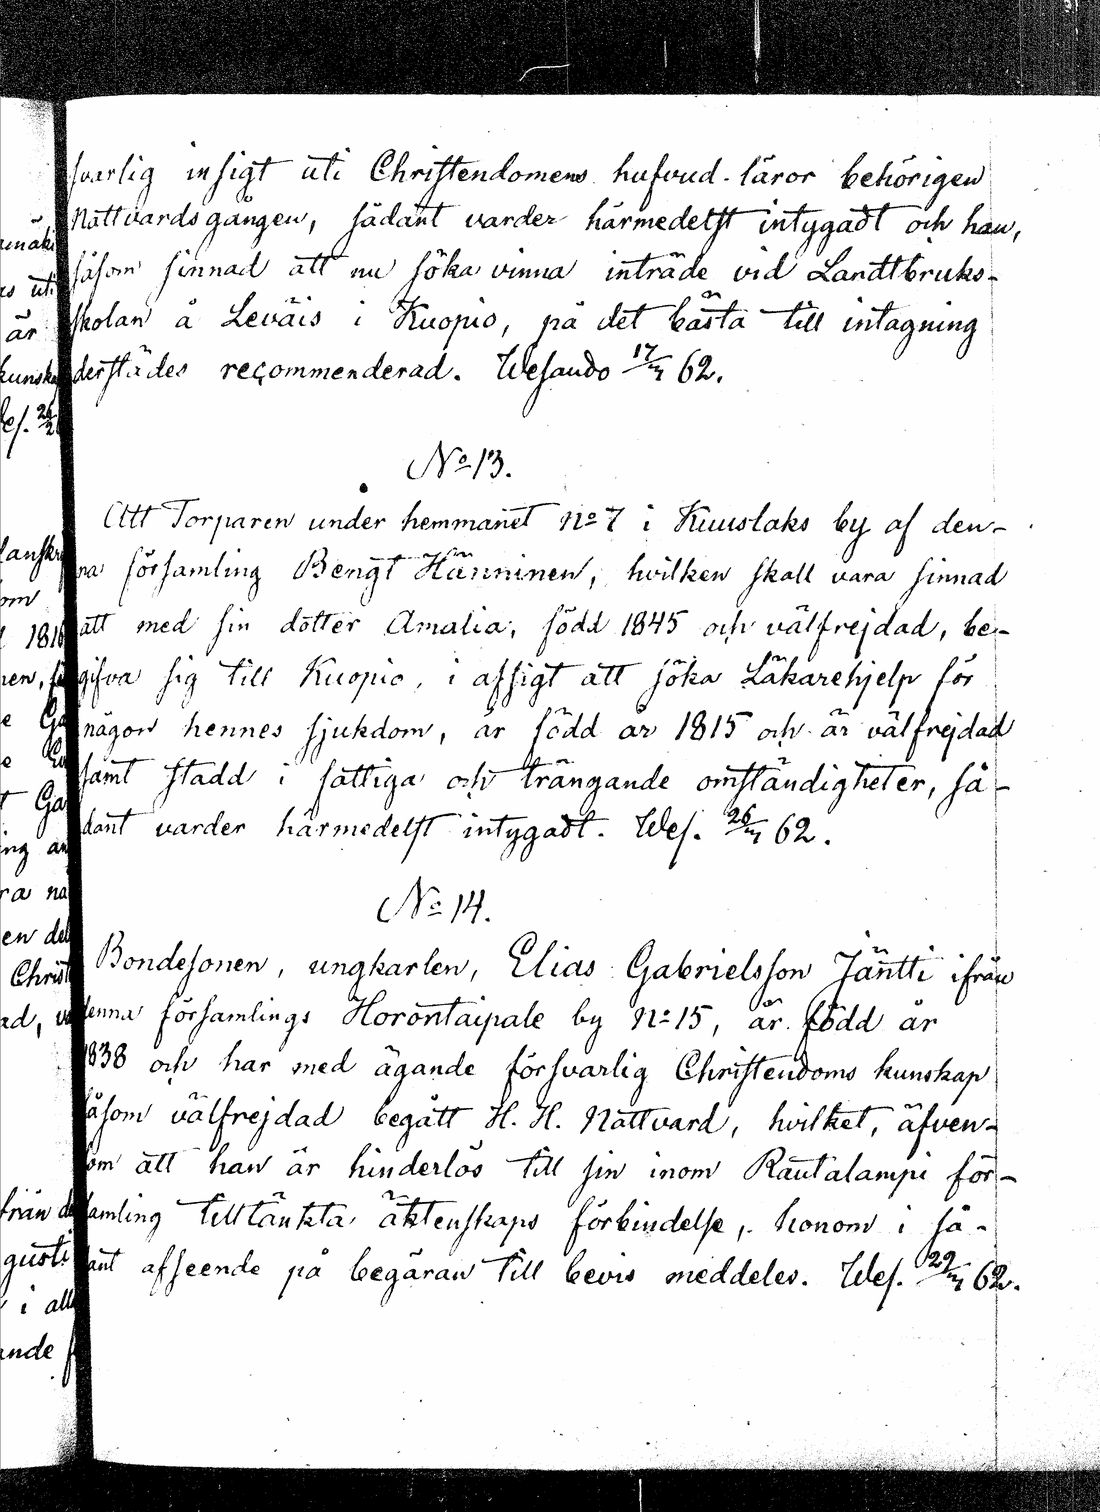 svarlig insigt uti Christendomens hufvud-läror behörigen
Nattvardsgången, sådant varder härmedelst intygadt och han,
såsom sinnad att nu söka vinna inträde vid Landtbruks-
skolan å Leväis i Kuopio, på det bästa till intagning
derstädes recommenderad. Wesando 17/7 62.
No 13.
Att Torparen under hemmanet No 7 i Kuuslaks by af den-
na församling Bengt Hänninen, hvilken skall vara sinnad
att med sin dotter Amalia, född 1845 och välfrejdad, be-
gifva sig till Kuopio, i afsigt att söka Läkarehjelp för
någon hennes sjukdom, är född år 1815 och är välfrejdad
samt stadd i fattiga och trängande omständigheter, så-
dant varder härmedelst intygadt. Wes. 26/7 62.
No 14.
Bondesonen, ungkarlen, Elias Gabrielsson Jäntti ifrån
denna församlings Horontaipale by No 15, är född år
1838 och har med ägande försvarlig Christendoms kunskap
såsom välfrejdad begått H. H. Nattvard, hvilket, äfven-
som att han är hinderlös till sin inom Rautalampi för-
samling tilltänkta äktenskaps förbindelse, honom i så-
dant afseende på begäran till bevis meddeles. Wes. 29/7 62.